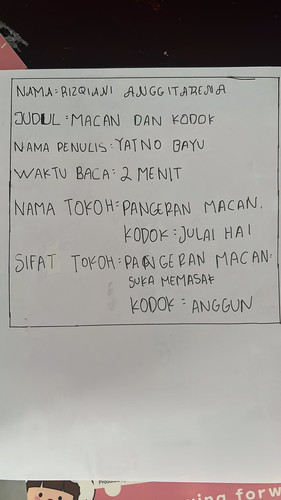 NAMA : RIZQIANI ANGGITARENA
JUDUL : MACAN DAN KODOK
NAMA PENULIS : YATNO BAYU
WAKTU BACA : 2 MENIT
NAMA TOKOH : PANGERAN MACAN.
KODOK : JULAI HAI
SIFAT TOKOH : PANGERAN MACAN :
SUKA MEMASAK
KODOK : ANGGUN
ing forw